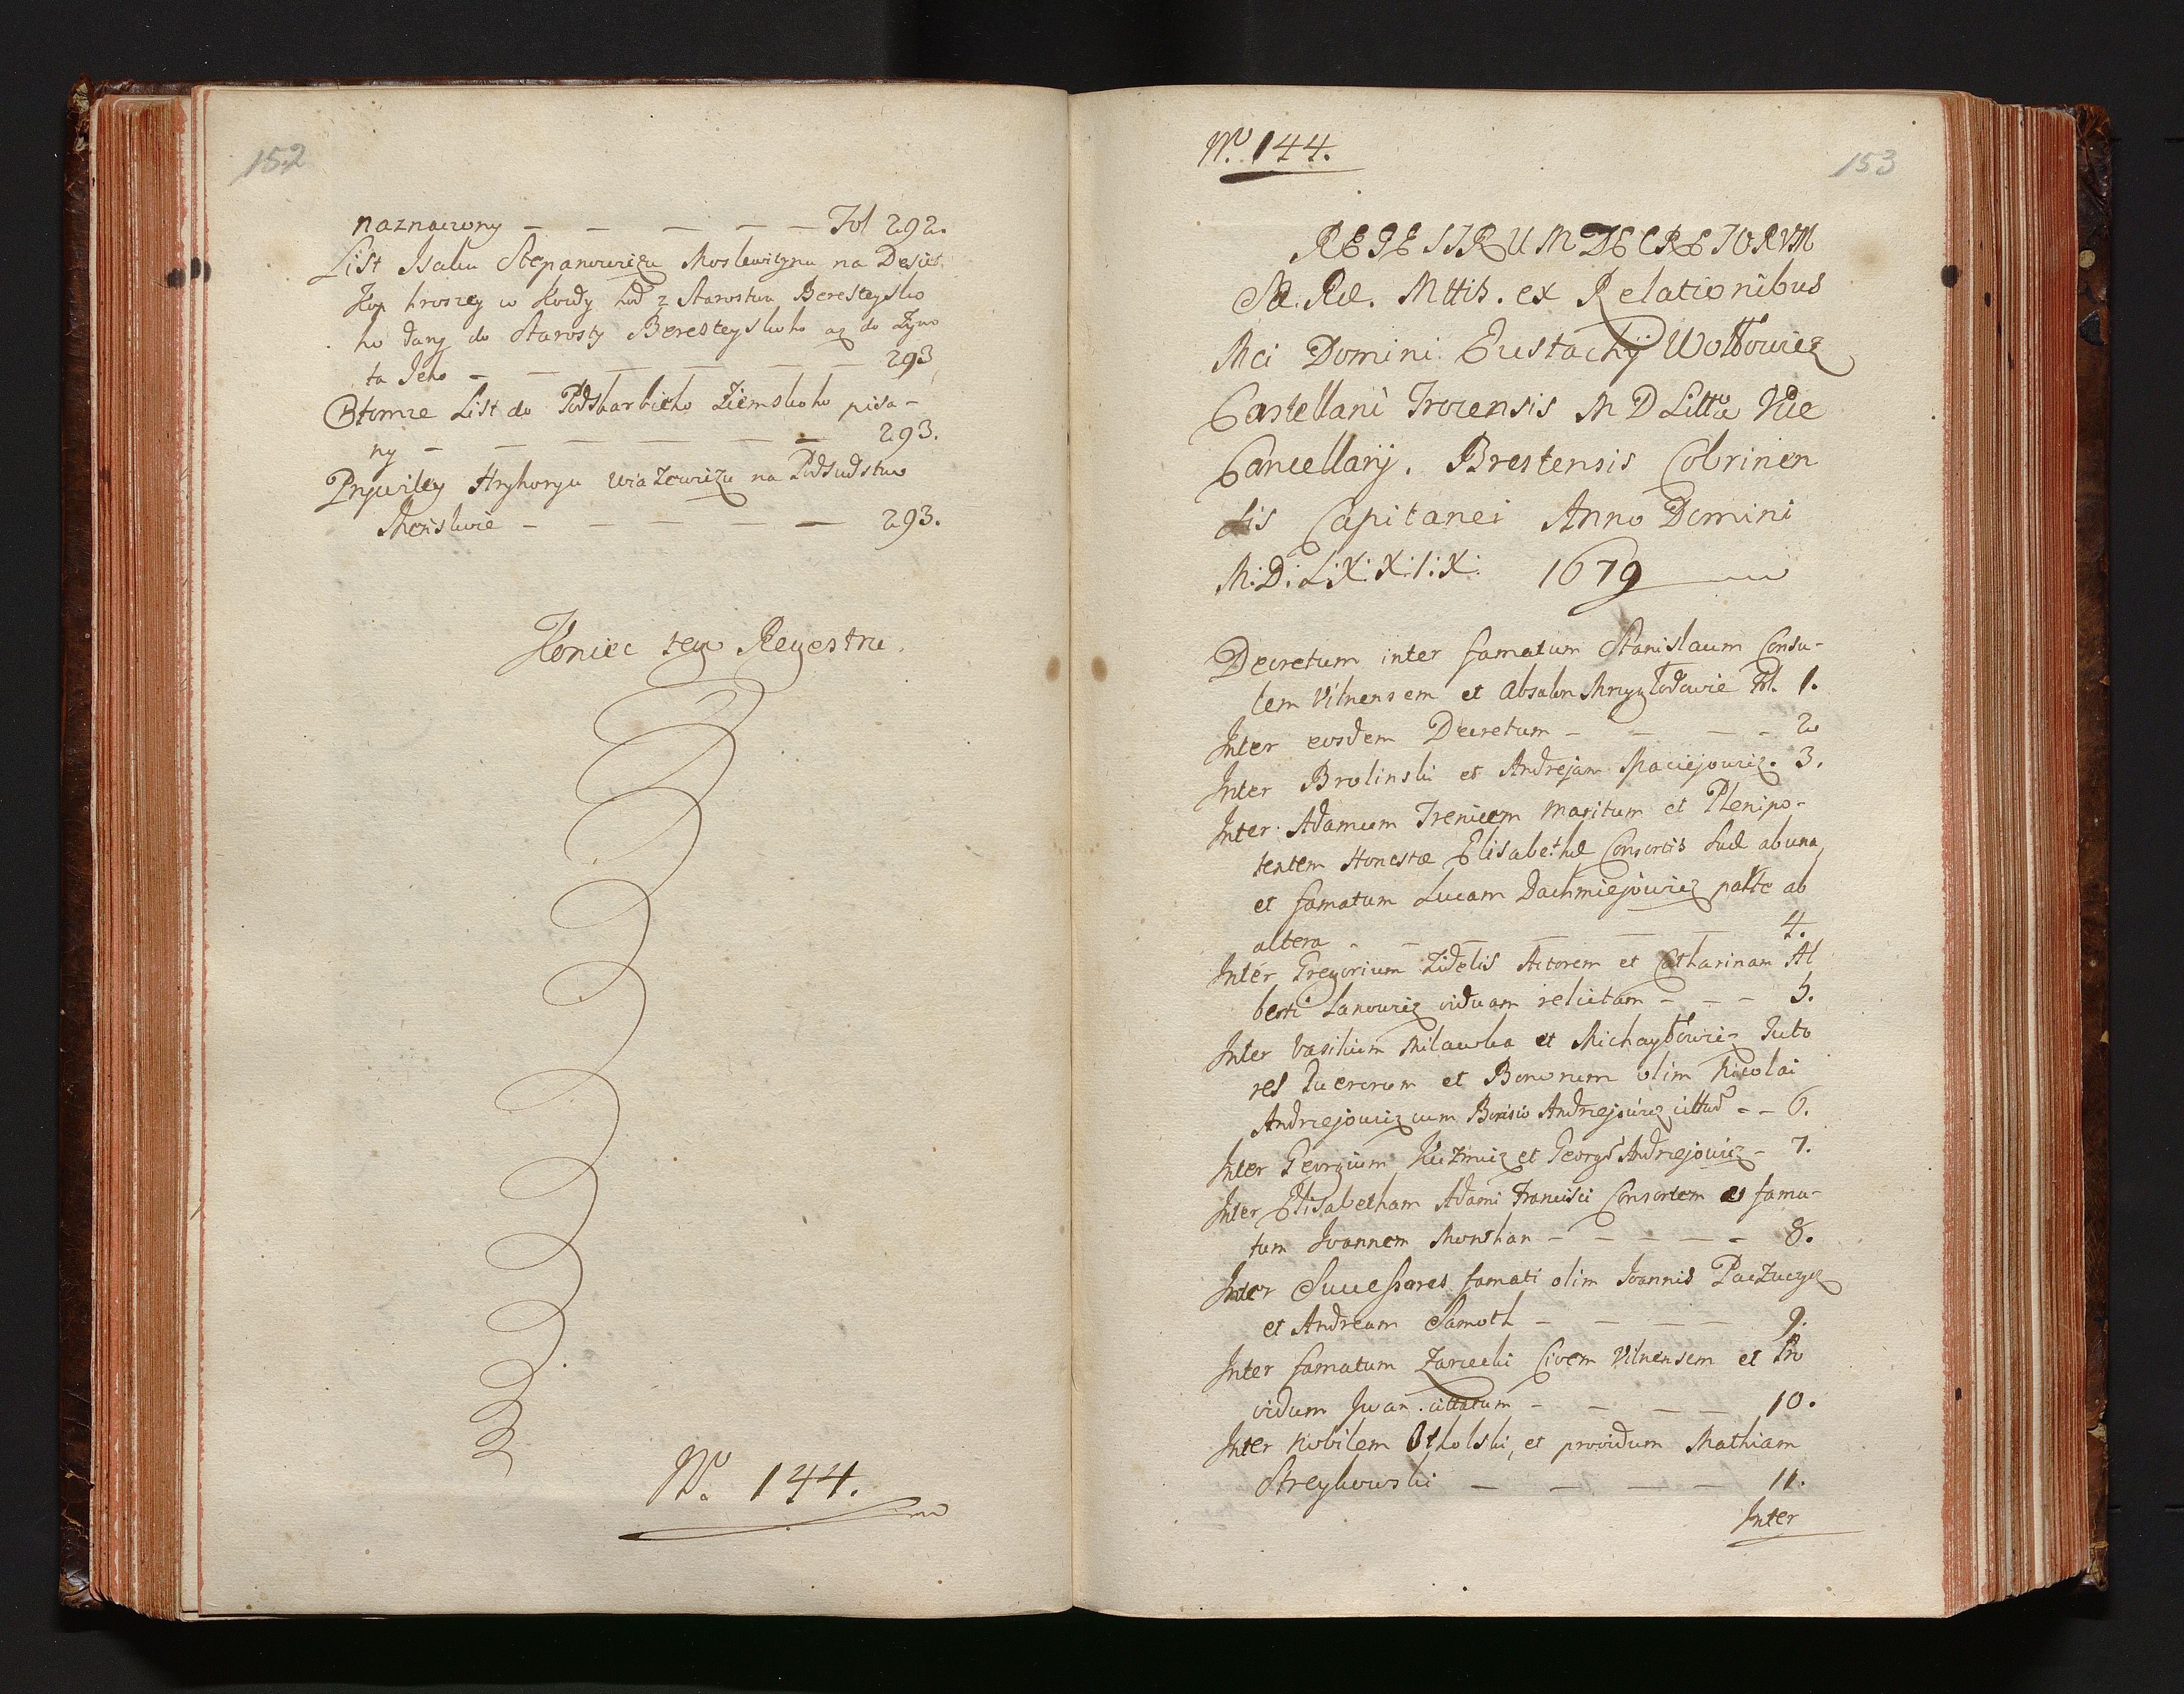 152
naznaczony — — — — — Fol 292.
List Isaku Stepanowiczu Moskwitynu na Desiet
Kop hroszey w kozdy hod z Starostwa Beresteysko
ho dany do Starosty Beresteyskoho aż do Zywo
ta Jeho — — — — — 293
Otomże List do Podskarbieho Ziemskoho pisa-
ny — — — — — 293.
Prywiley Hryhoryu Wiazewiczu na Podsudstwo
Minskoie — — — — — 293.
Koniec tego Regestru.
No. 144.
No. 144.
153
REGESTRUM DECRETORVM
Sæ. Ræ. Mttis. ex Relationibus
Mci Domini Eustachij Wołłowicz
Castellani Trocensis M D Littæ Vice
Cancellarij. Brestensis Cobrinen
sis Capitanei Anno Domini
M:D:L:X:X:I:X: 1679
Decretum inter famatum Stanislaum Consu-
lem Vilnensem et Absalon Fol. 1.
Inter eosdem Decretum — — — 2
Inter Brolinski et Andrejam Maciejowicz. 3.
Inter Adamum Trenicem Maritum et Plenipo-
tentem Honestæ Elisabethæ Consortis suæ ab una
et famatum Lucam Dachmiejowicz parte ab
altera — — — — — 4.
Inter Gregorium Zidelis Actorem et Catharinam Al
berti Janowicz viduam relictam — — — 5.
Inter Vasilium Milawka et Michayłowicz Tuto
res Puerorum et Bonorum olim Nicolai
Andrzejowicz cum Borisio Andrzejowicz cittat — — 6.
Inter Georgium Kuzmicz et Georg Andrzejowicz — 7.
Inter Elisabetham Adami Francisci Consortem et fama-
tum Joannem Monshan — — — — — 8.
Inter Successores famati olim Joannis Paczuczyc
et Andream Samoth — — — — 9.
Inter famatum Zarzecki Civem Vilnensem et Pro
vidum Jwan cittatum — — — — 10.
Inter Nobilem Otholski, et providum Mathiam
Streykowski — — — — 11.
Inter